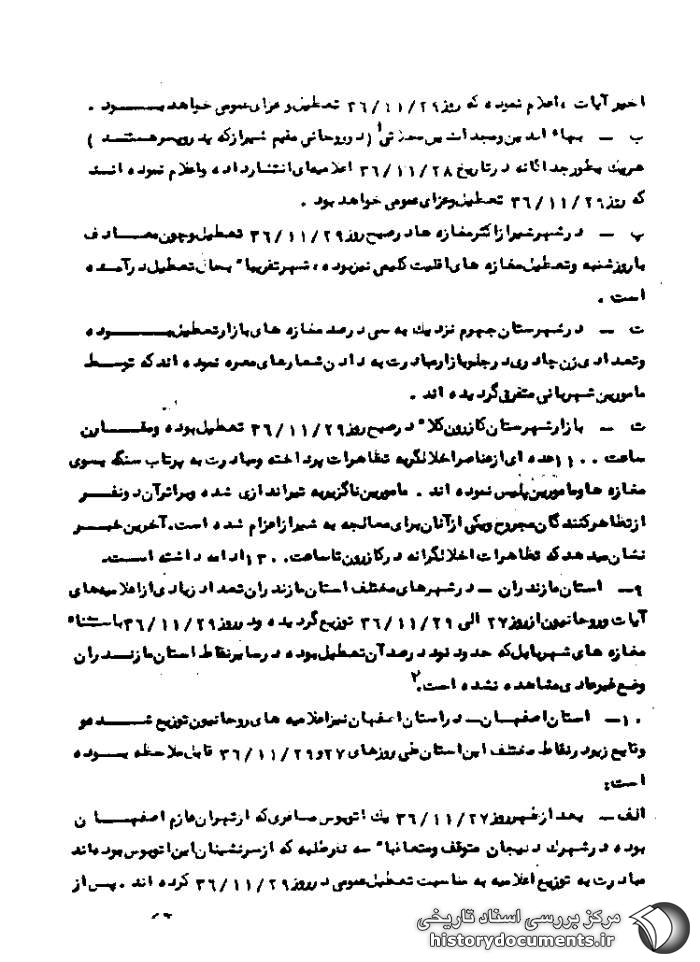 اخیر آیات ، اعلام نموده که روز ۳۶/۱۱/۲۹ تعطیل و عزای عمومی خواهد بود .
ب - بهاء الدین و مجدالدین محلاتی۱ (دو روحانی مقیم شیراز که پدر و پسر هستند )
هریک بطور جداگانه در تاریخ ۳۶/۱۱/۲۸ اعلامیه‌ای انتشار داده و اعلام نموده اند
که روز ۳۶/۱۱/۲۹ تعطیل و عزای عمومی خواهد بود .
پ - در شهر شیراز اکثر مغازه ها در صبح روز ۳۶/۱۱/۲۹ تعطیل و چون مصادف
با روز شنبه و تعطیل مغازه های اقلیت کلیمی نیز بوده ، شهر تقریبا" بحال تعطیل درآمده
است .
ت - در شهرستان جهرم نزدیک به سی درصد مغازه های بازار تعطیل بوده
و تعدادی زن چادری در جلو بازار مبادرت به دادن شعارهای مضره نموده اند که توسط
مامورین شهربانی متفرق گردیده اند .
ث - بازار شهرستان کازرون کلا" در صبح روز ۳۶/۱۱/۲۹ تعطیل بوده و مقارن
ساعت ۱۱۰۰ عده ای از عناصر اخلالگر به تظاهرات پرداخته و مبادرت به پرتاب سنگ بسوی
مغازه ها و مامورین پلیس نموده اند . مامورین ناگزیر به تیراندازی شده و براثر آن دو نفر
از تظاهرکنندگان مجروح و یکی از آنان برای معالجه به شیراز اعزام شده است. آخرین خبر
نشان میدهد که تظاهرات اخلالگرانه در کازرون تا ساعت ۱۳۰۰ ادامه داشته است.
۹- استان مازندران - در شهرهای مختلف استان مازندران تعداد زیادی از اعلامیه‌های
آیات و روحانیون از روز ۲۷ الی ۳۶/۱۱/۲۹ توزیع گردیده و در روز ۳۶/۱۱/۲۹ باستثناء
مغازه های شهر بابل که حدود نود درصد آن تعطیل بوده در سایر نقاط استان مازندران
وضع غیرعادی مشاهده نشده است.۲
۱۰- استان اصفهان - در استان اصفهان نیز اعلامیه های روحانیون توزیع شده و
وقایع زیر در نقاط مختلف این استان طی روزهای ۲۷ و ۳۶/۱۱/۲۹ قابل ملاحظه بوده
است:
الف - بعد از ظهر روز ۳۶/۱۱/۲۷ یک اتوبوس مسافری که از تهران عازم اصفهان
بوده در شهرک دلیجان متوقف و متعاقبا" سه نفر طلبه که از سرنشینان این اتوبوس بوده‌اند
مبادرت به توزیع اعلامیه به مناسبت تعطیل عمومی در روز ۳۶/۱۱/۲۹ کرده اند . پس از
مرکز بررسی اسناد تاریخی
historydocuments.ir